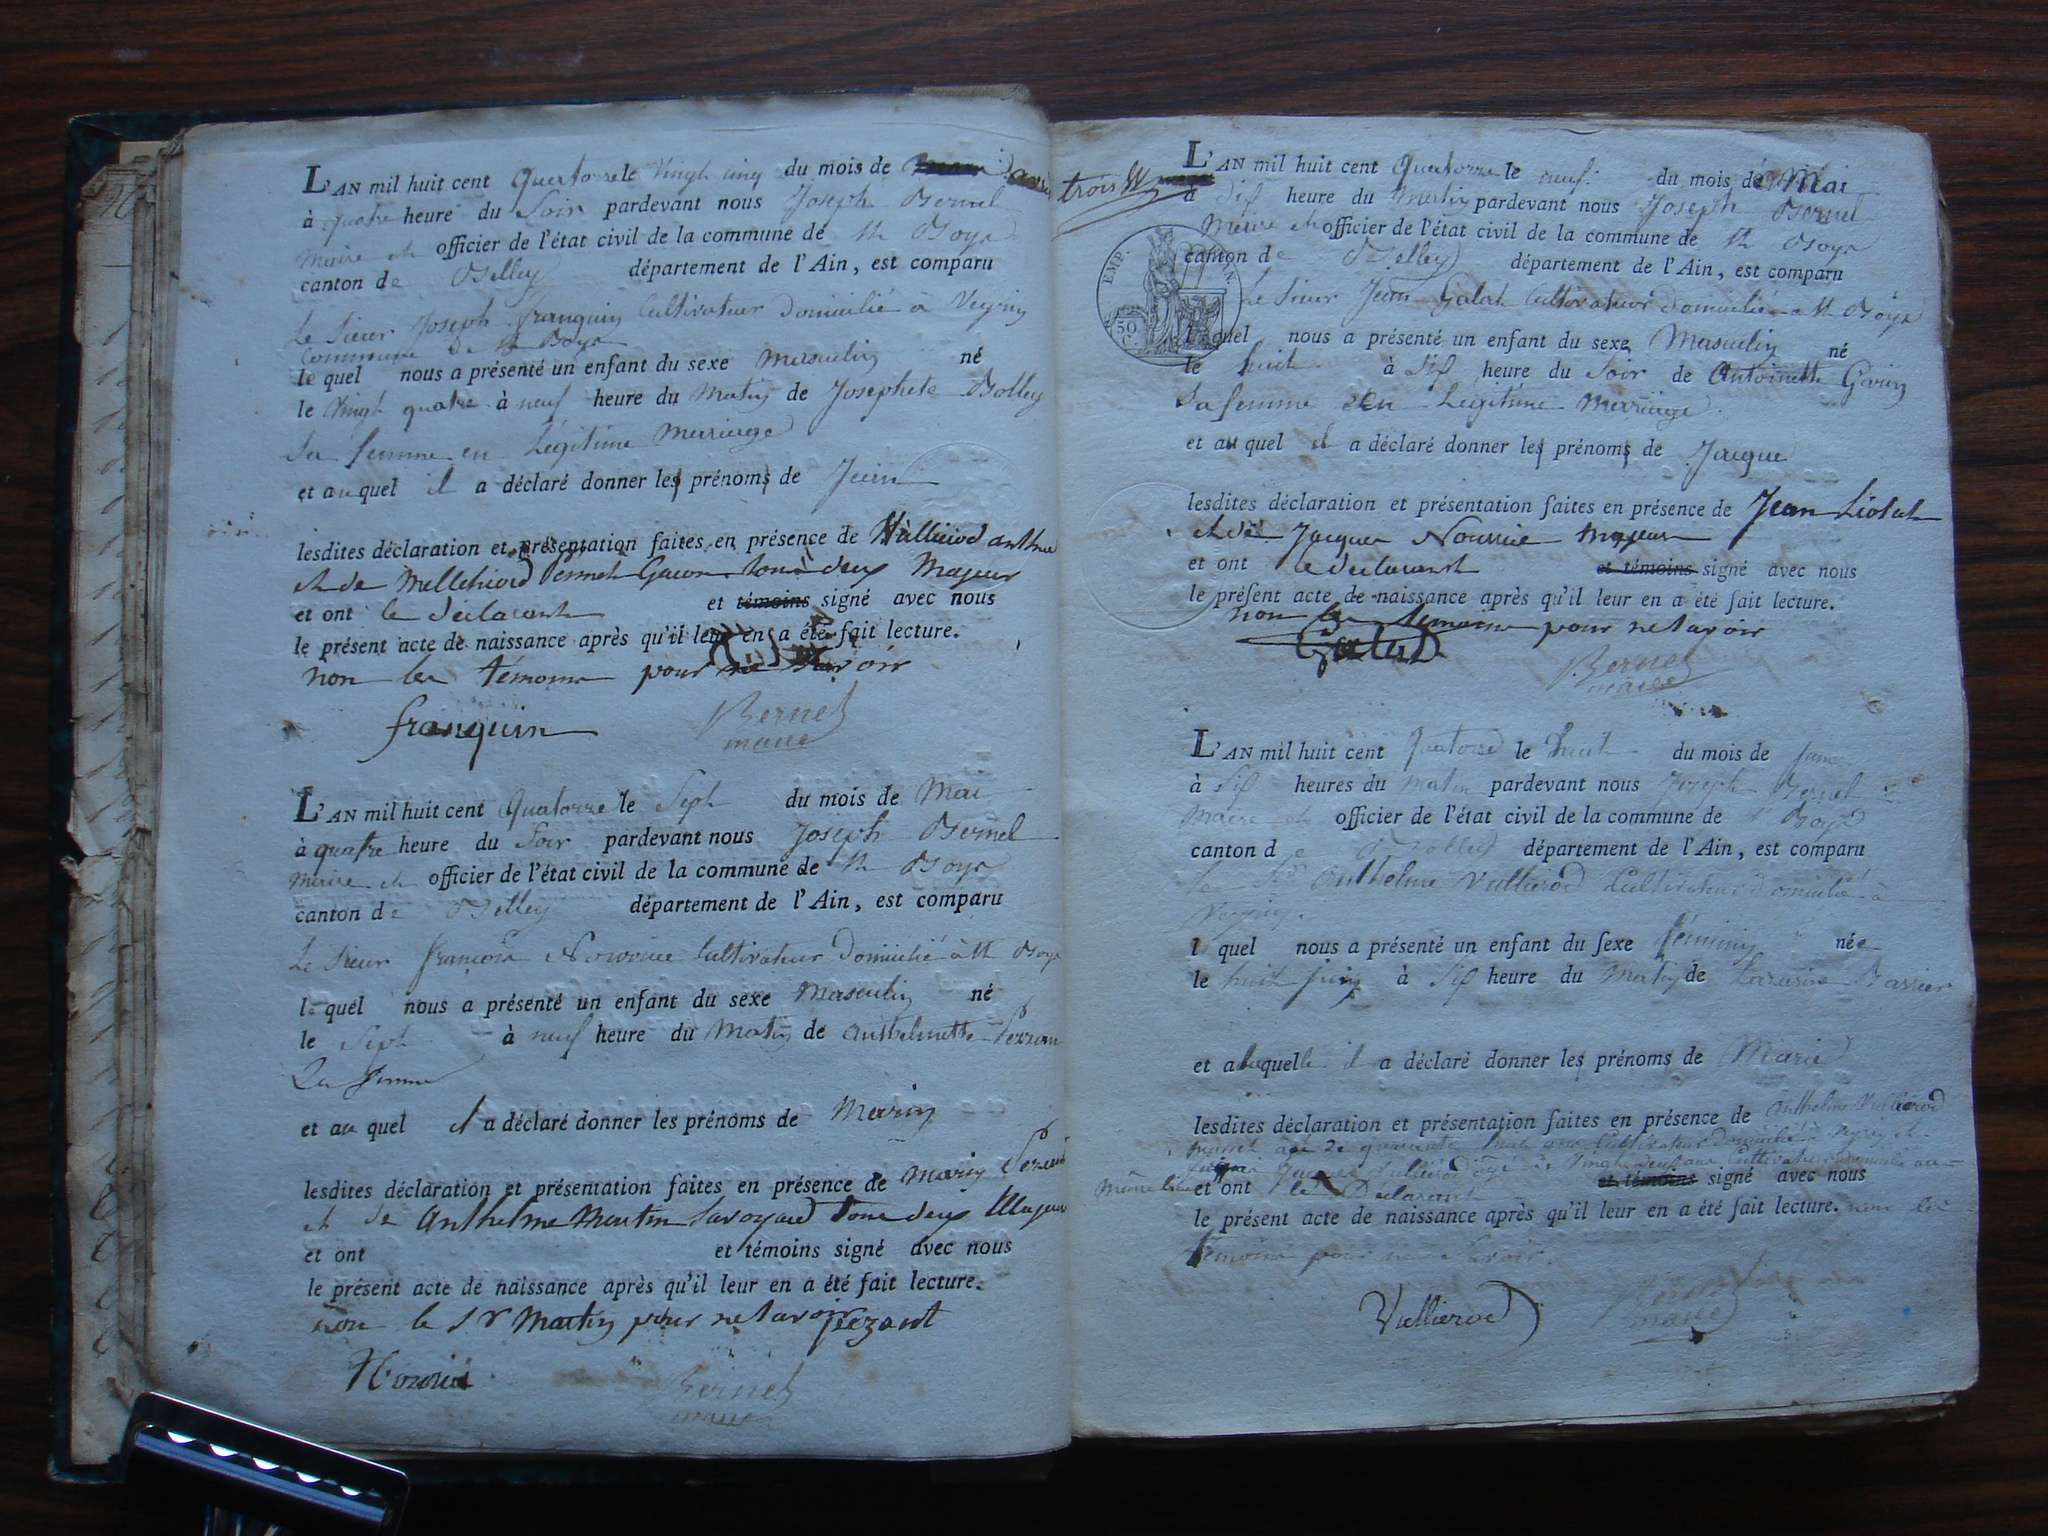 L'AN mil huit cent quatorze le Vingt cinq du mois de
à quatre heure du Soir pardevant nous Joseph Bernel
Maire et officier de l'état civil de la commune de St Boys
canton de Belley département de l'Ain, est comparu
Le Sieur Joseph franquin Cultivateur Domicilié à Veyrin
Commune De St Boys
le quel nous a présenté un enfant du sexe Masculin né
le Vingt quatre à neuf heure du Matin de Josephete Bolley
Sa femme en Légitime Mariage
et au quel il a déclaré donner les prénoms de Jean
lesdites déclaration et présentation faites en présence de Vullierod anthe
et de tous deux Majeur
et ont le declarant et témoins signé avec nous
le présent acte de naissance après qu'il leur en a été fait lecture.
non les témoins pour ne Savoir
franquin Bernel
maire
L'AN mil huit cent Quatorze le Sept du mois de Mai
à quatre heure du Soir pardevant nous Joseph Bernel
Maire et officier de l'état civil de la commune de St Boys
canton de Belley département de l'Ain, est comparu
Le Sieur françois Nourrice Cultivateur Domicilié à St Boys
le quel nous a présenté un enfant du sexe Masculin né
le Sept à neuf heure du Matin de anthelmette
Sa femme
et au quel il a déclaré donner les prénoms de Marin
lesdites déclaration et présentation faites en présence de Marin
et de Anthelme Martin Savoyard Tous deux Majeur
et ont et témoins signé avec nous
le présent acte de naissance après qu'il leur en a été fait lecture.
non le Sr Martin pour ne savoir
Bernel
maire
trois
L'AN mil huit cent Quatorze le neuf du mois de Mai
à Six heure du Matin pardevant nous Joseph Bernel
Maire et officier de l'état civil de la commune de St Boys
EMP.
50
C.
canton de Belley département de l'Ain, est comparu
Le Sieur Jean Galat Cultivateur domicilié à St Boys
le quel nous a présenté un enfant du sexe Masculin né
le huit à Six heure du Soir de Antoinette Garin
Sa femme en Légitime Mariage
et au quel il a déclaré donner les prénoms de Jacque
lesdites déclaration et présentation faites en présence de Jean Liotat
et de Jacque Nourrice majeur
et ont le declarant et témoins signé avec nous
le présent acte de naissance après qu'il leur en a été fait lecture.
non les temoins pour ne savoir
Bernel
maire
L'AN mil huit cent Quatorze le huit du mois de juin
à Six heures du matin pardevant nous Joseph Bernel
Maire et officier de l'état civil de la commune de St Boys
canton de Belley département de l'Ain, est comparu
le Sr Anthelme Vullierod Cultivateur domicilié à
Veyrin.
l quel nous a présenté un enfant du sexe féminin née
le huit juin à Six heure du Matin de
et a laquelle il a déclaré donner les prénoms de Marie
lesdites déclaration et présentation faites en présence de Anthelme Vullierod
agé de quarante huit ans Cultivateur domicilié à Veyrin et
Vullierod agé de Vingt deux ans Cultivateur domicilié au
même lieu et ont le Déclarant et témoins signé avec nous
le présent acte de naissance après qu'il leur en a été fait lecture. non les
témoins pour ne Savoir.
Vullierod
maire